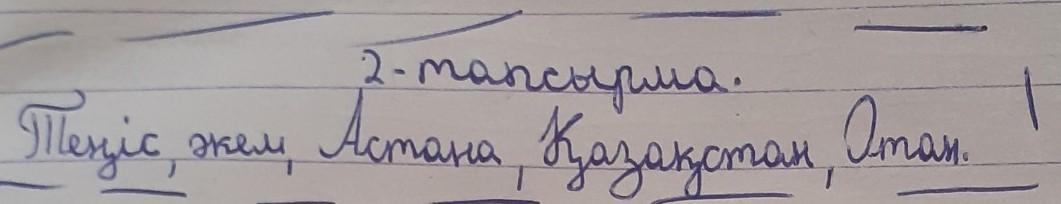 2-тапсырма.
Теңіс, әкем, Астана, Қазақстан, Отан.